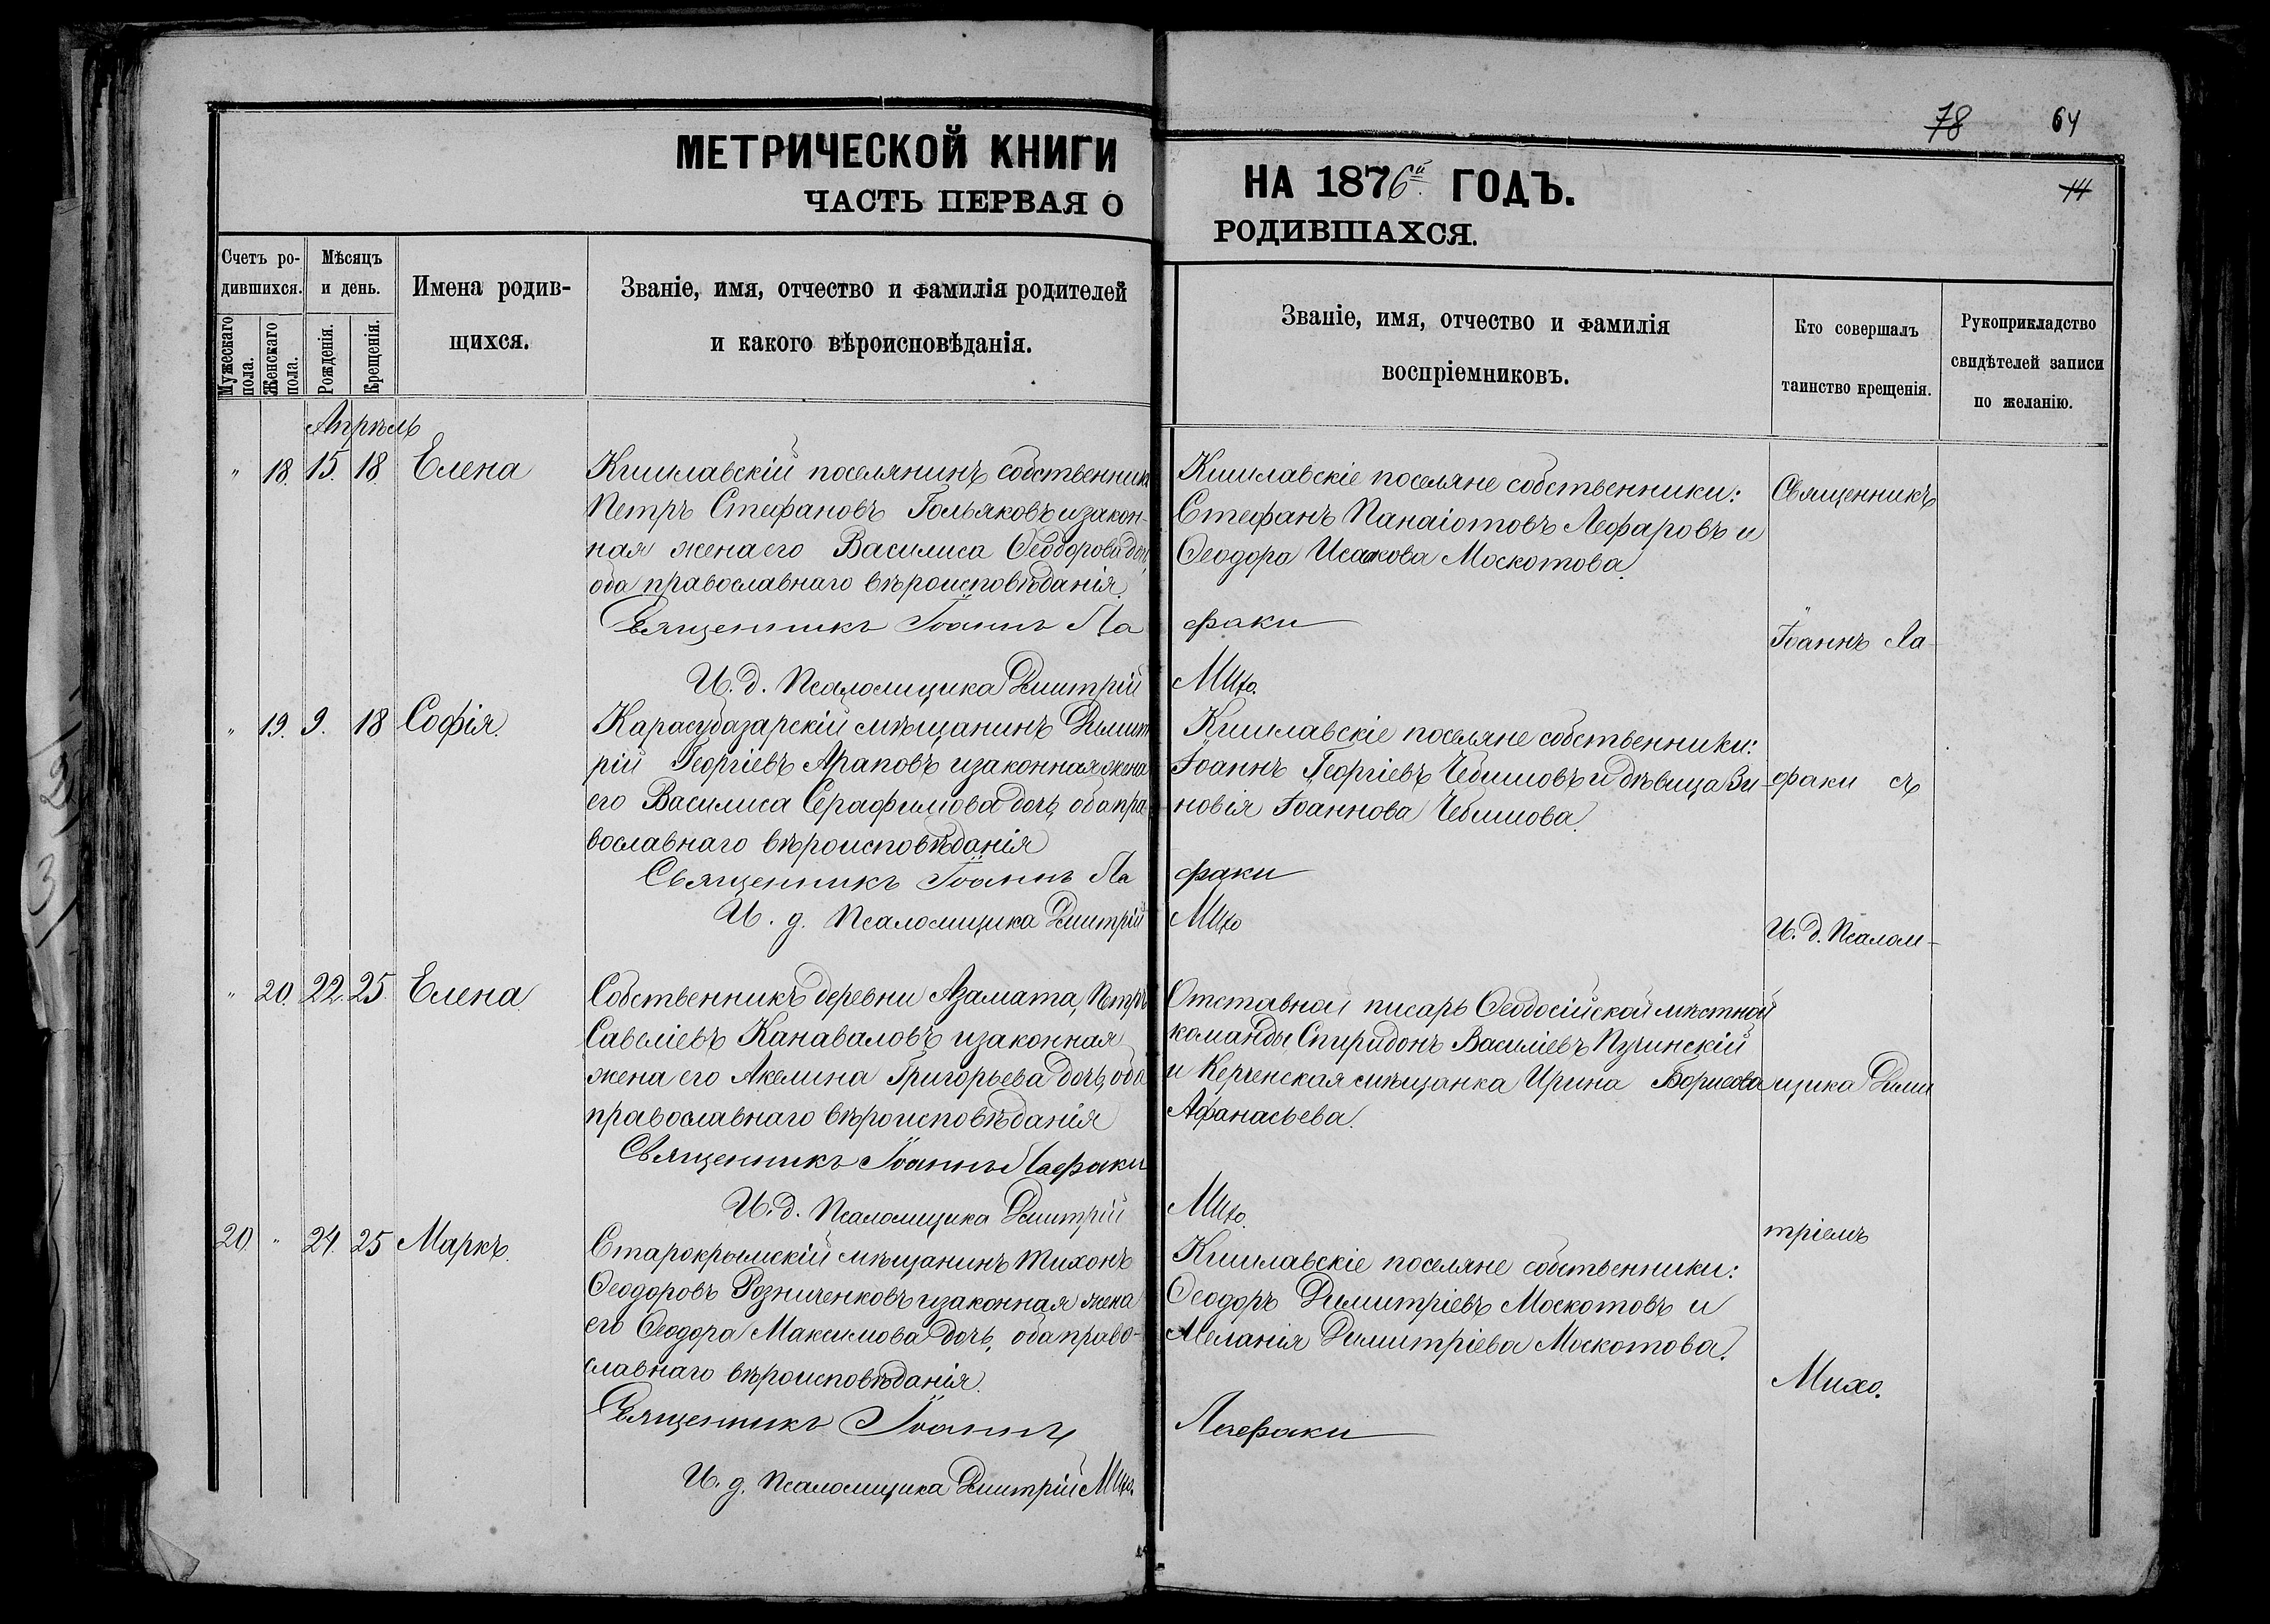 78 64
14
МЕТРИЧЕСКОЙ КНИГИ НА 1876й ГОДЪ.
ЧАСТЬ ПЕРВАЯ О РОДИВШАХСЯ.
Счетъ ро-
дившихся.
Мужескаго пола.
Женскаго пола.
Мѣсяцъ
и день.
Рожденія.
Крещенія.
Имена родив-
щихся.
Званіе, имя, отчество и фамилія родителей
и какого вѣроисповѣданія.
Званіе, имя, отчество и фамилія
воспріемниковъ.
Кто совершалъ
таинство крещенія.
Рукоприкладство
свидѣтелей записи
по желанію.
Апрѣль
" 18. 15. 18. Елена
Кишлавскій поселянинъ собственникъ
Петръ Стефановъ Гольяковъ и закон-
ная жена его Василиса Ѳеодорова дочь,
оба православнаго вѣроисповѣданія.
Священникъ Іоаннъ Ла
И. д. Псаломщика Дмитрій
Кишлавскіе поселяне собственники:
Стефанъ Панаіотовъ Лефаровъ и
Ѳеодора Исакова Москотова.
факи
Михо.
Священникъ
Іоаннъ Ла-
" 19. 9. 18 Софія.
Карасубазарскій мѣщанинъ Димит
рій Георгіевъ Араповъ и законная жена
его Василиса Серафимова дочь, оба пра-
вославнаго вѣроисповѣданія
Священникъ Іоаннъ Ла
И. д. Псаломщика Дмитрій
Кишлавскіе поселяне собственники:
Іоаннъ Георгіевъ Чебишовъ и дѣвица Зи-
новія Іоаннова Чебишова.
факи
Михо
факи съ
И. д. Псалом-
" 20. 22. 25. Елена.
Собственникъ деревни Азамата, Петръ
Савеліевъ Канаваловъ и законная
жена его Акелина Григорьева дочь, оба
православнаго вѣроисповѣданія
Священникъ Іоаннъ Лафаки
И. д. Псаломщика Дмитрій
Отставной писарь Ѳеодосійской мѣстной
команды Спиридонъ Василіевъ Пучинскій
и Керченская мѣщанка Ирина Борисова
Афанасьева.
Михо.
щика Дими
тріемъ
20. " 24. 25 Маркъ.
Старокрымскій мѣщанинъ Тихонъ
Ѳеодоровъ Розниченковъ и законная жена
его Ѳеодора Максимова дочь, оба право-
славнаго вѣроисповѣданія.
Священникъ Іоаннъ
И. д. Псаломщика Дмитрій Михо.
Кишлавскіе поселяне собственники:
Ѳеодоръ Димитріевъ Москотовъ и
Меланія Димитріева Москотова.
Лафаки
Михо.